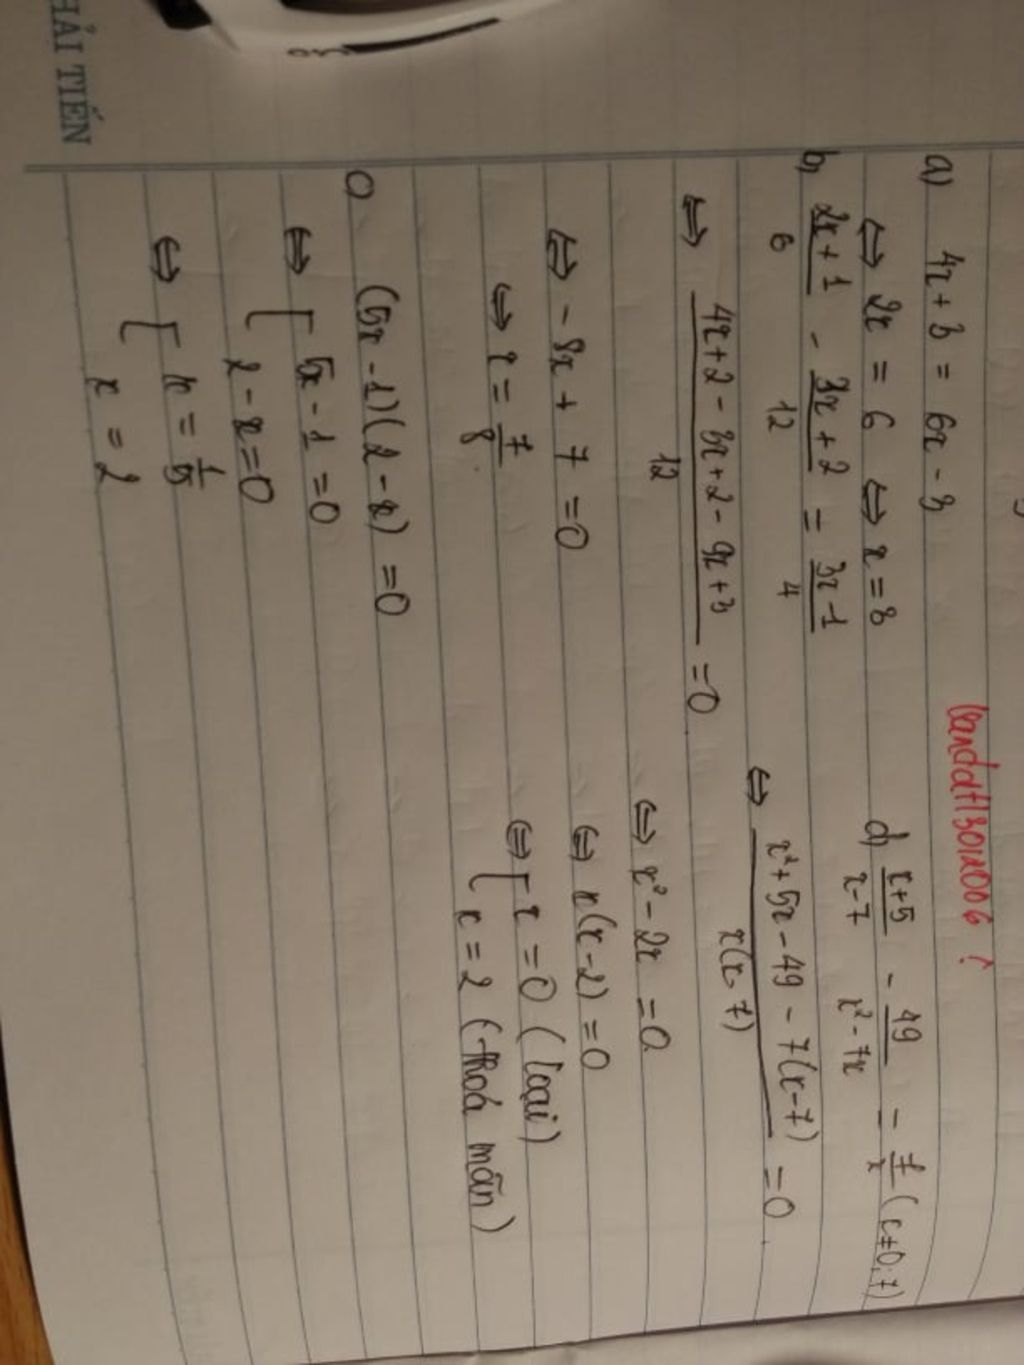 HẢI TIẾN
vandat13012006 ?
a) 4x + 3 = 6x - 3
⇔ 2x = 6 ⇔ x = 3
b) (2x+1)/6 - (3x+2)/12 = (3x-1)/4
⇔ (4x+2-3x+2-9x+3)/12 = 0
⇔ -8x + 7 = 0
⇔ x = 7/8
c) (5x-1)(2-x) = 0
⇔ [ 5x-1 = 0
2-x = 0
⇔ [ x = 1/5
x = 2
d) (x+5)/(x-7) - 49/(x²-7x) = 7/x (x≠0;7)
⇔ (x²+5x-49-7(x-7))/(x(x-7)) = 0
⇔ x²-2x = 0
⇔ x(x-2) = 0
⇔ [ x = 0 (loại)
x = 2 (thoả mãn)